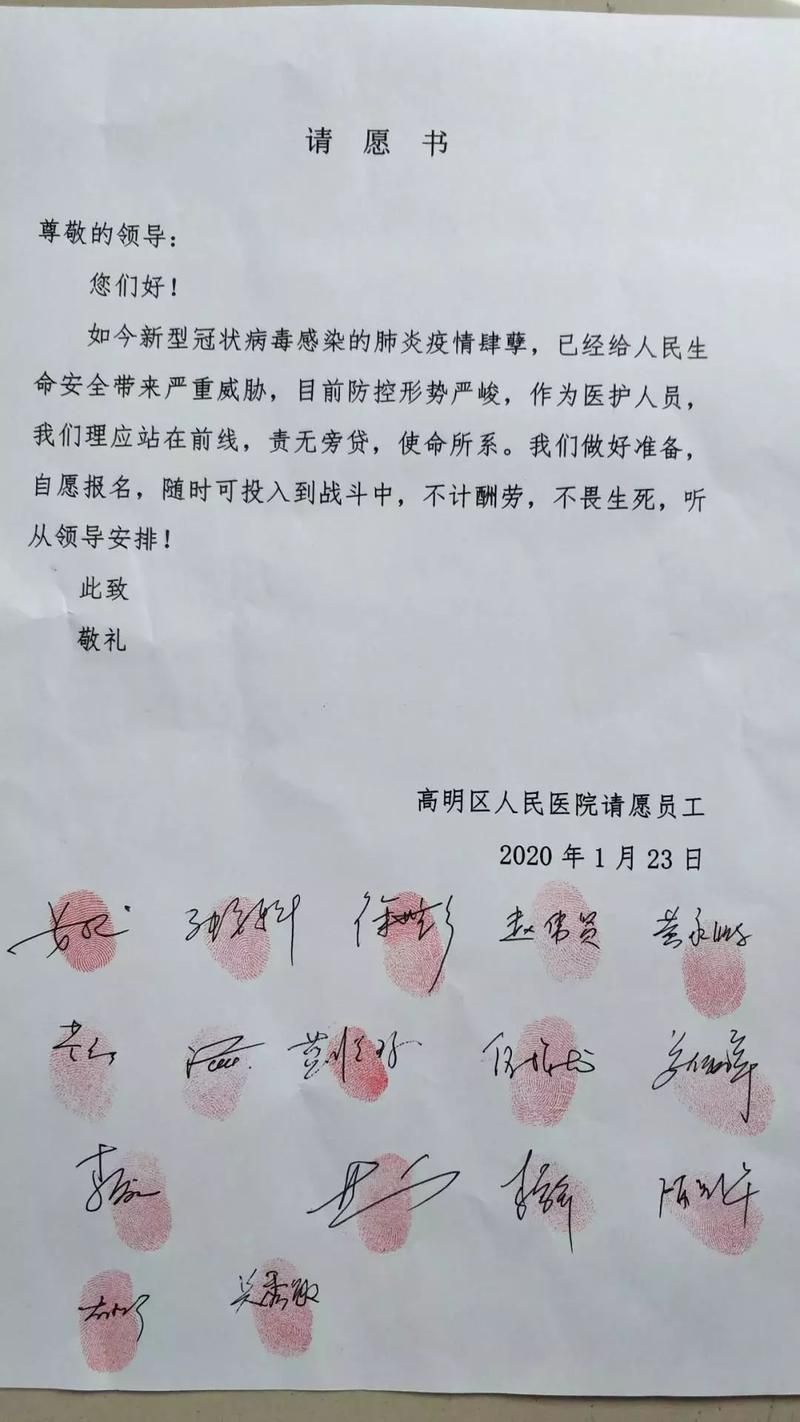 请愿书
尊敬的领导：
您们好！
如今新型冠状病毒感染的肺炎疫情肆孽，已经给人民生
命安全带来严重威胁，目前防控形势严峻，作为医护人员，
我们理应站在前线，责无旁贷，使命所系。我们做好准备，
自愿报名，随时可投入到战斗中，不计酬劳，不畏生死，听
从领导安排！
此致
敬礼
高明区人民医院请愿员工
2020年1月23日
徐世彭 赵伟贤
吴秀敏